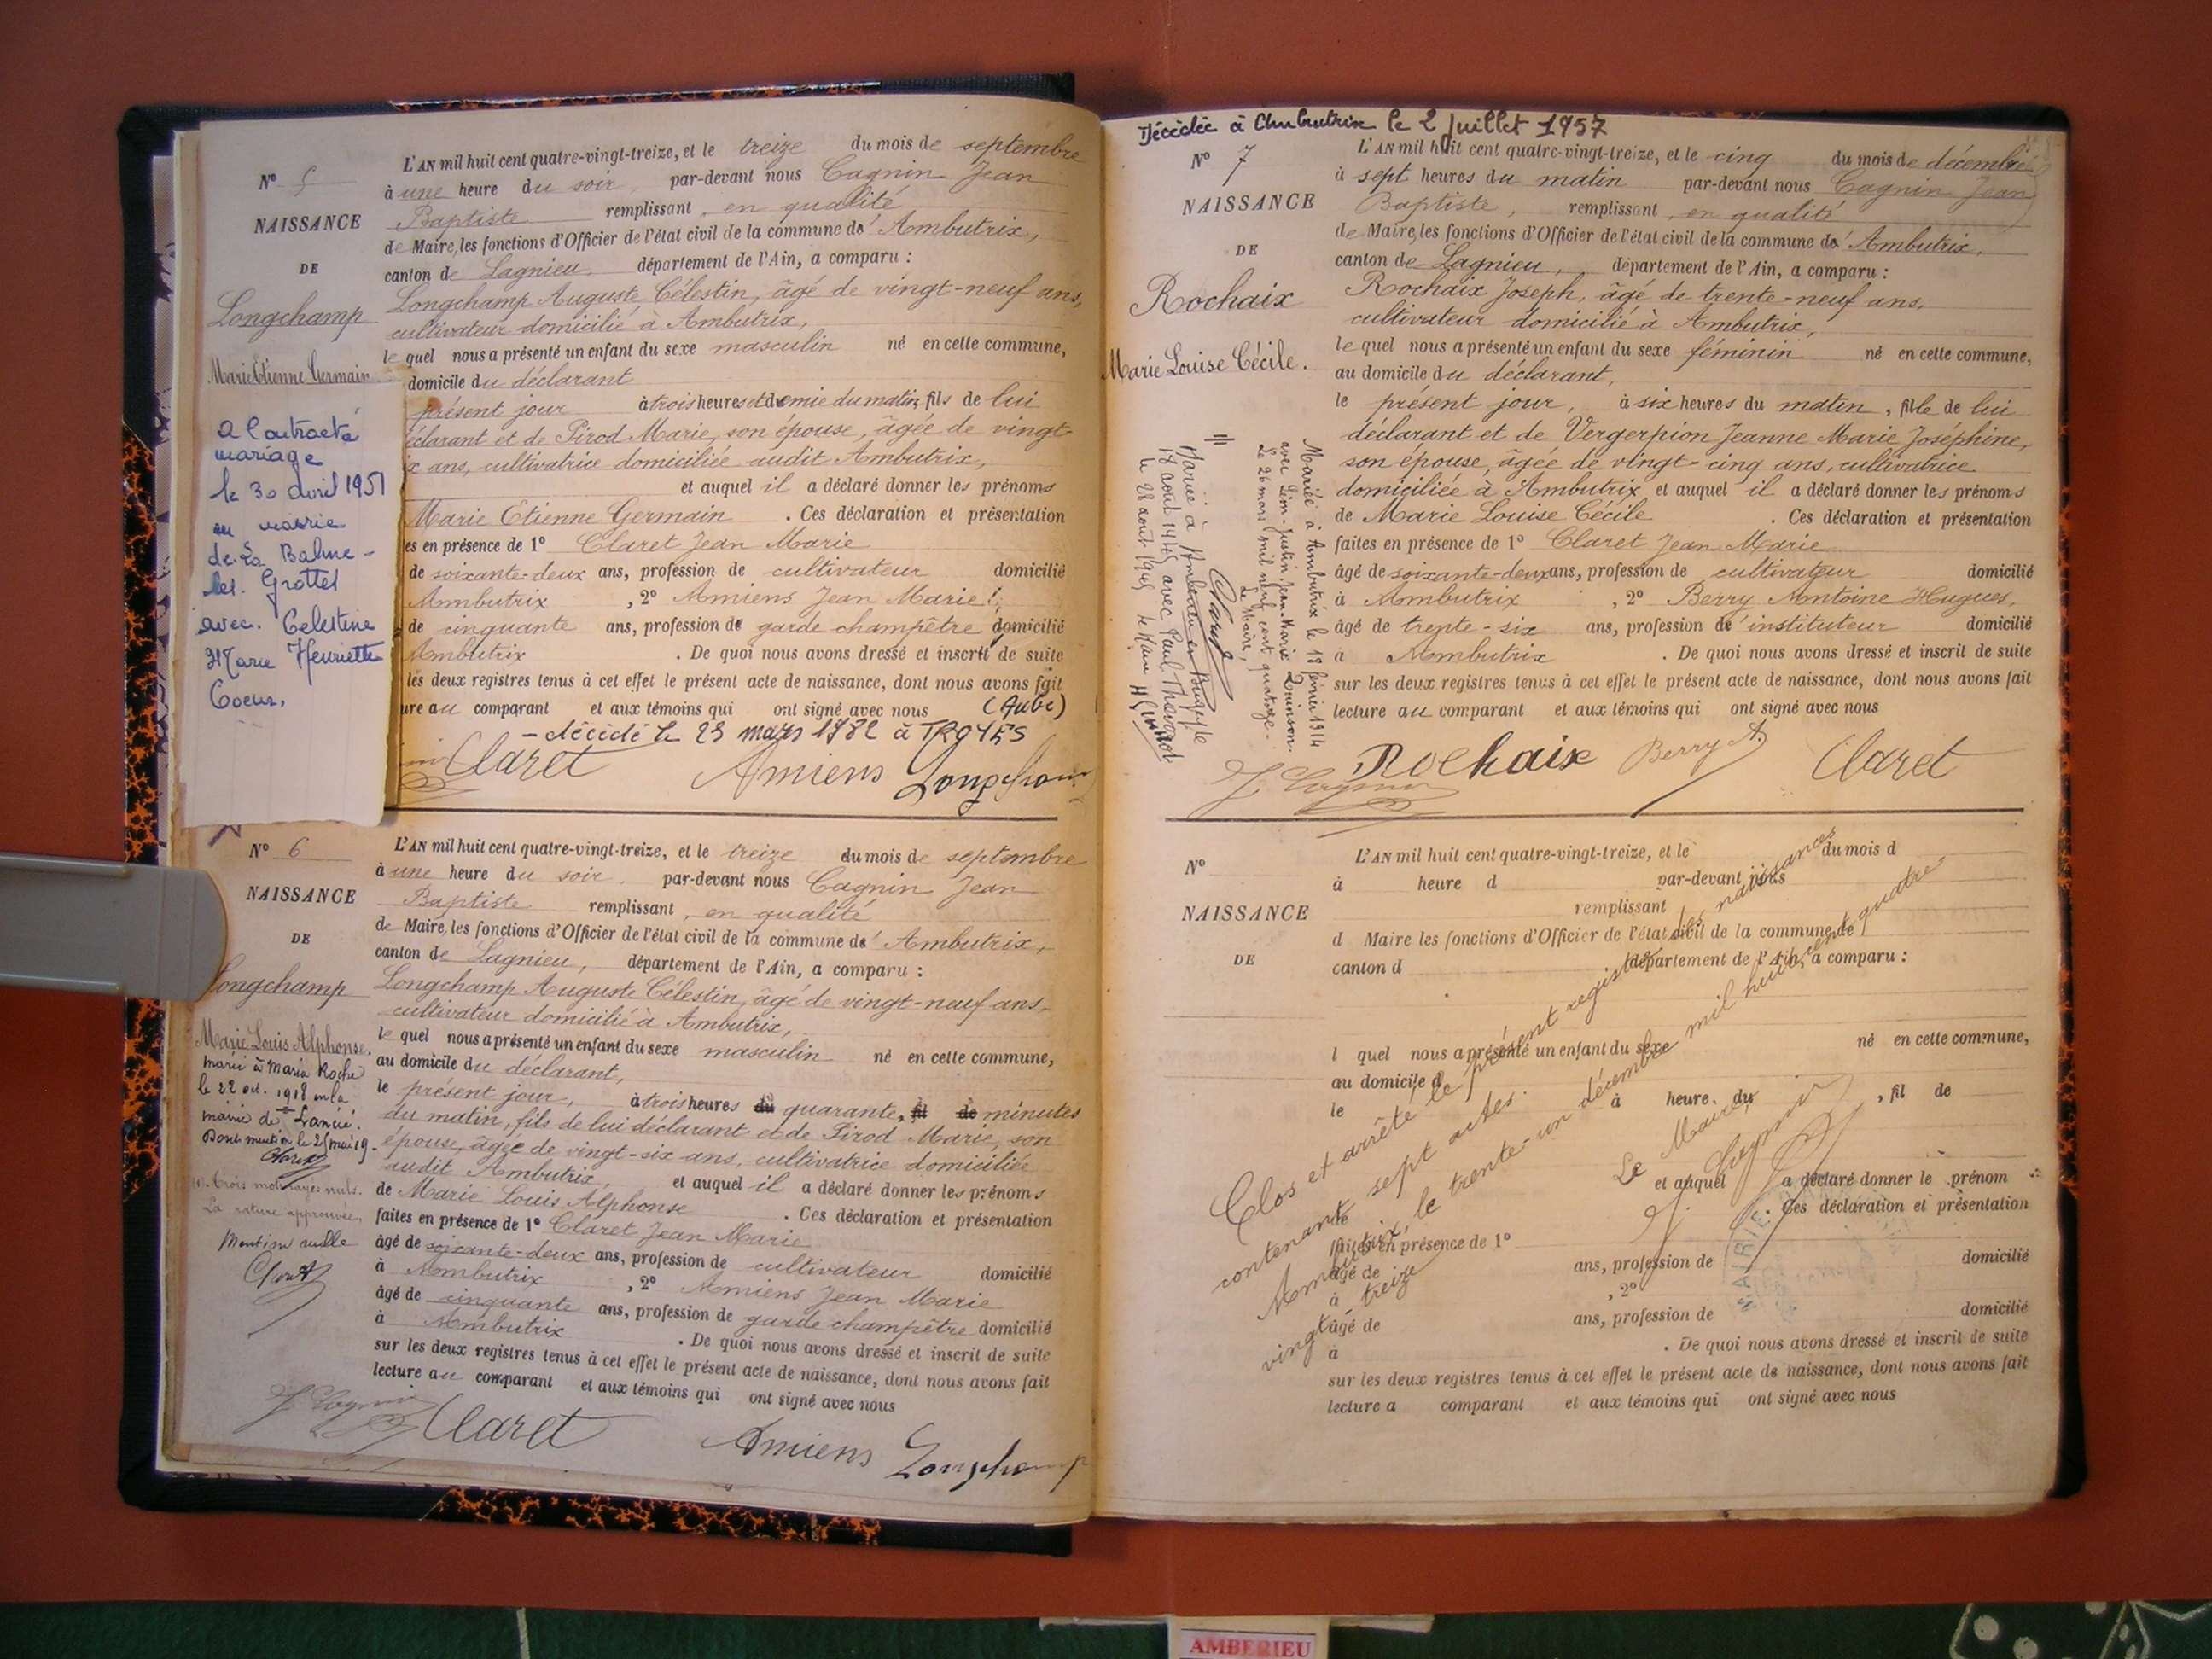 L'AN mil huit cent quatre-vingt-treize, et le treize du mois de septembre
N° 5
à une heure du soir, par-devant nous Cagnin Jean
NAISSANCE
Baptiste remplissant, en qualité
de Maire, les fonctions d'Officier de l'état civil de la commune d'Ambutrix,
DE
canton de Lagnieu, département de l'Ain, a comparu :
Longchamp
Longchamp Auguste Célestin, âgé de vingt-neuf ans,
cultivateur domicilié à Ambutrix,
Marie Etienne Germain
le quel nous a présenté un enfant du sexe masculin né en cette commune,
domicile du déclarant
présent jour à trois heures et demie du matin, fils de lui
éclarant et de Pirod Marie, son épouse, âgée de vingt-
ix ans, cultivatrice domiciliée audit Ambutrix,
et auquel il a déclaré donner les prénoms
Marie Etienne Germain . Ces déclaration et présentation
es en présence de 1° Claret Jean Marie
de soixante-deux ans, profession de cultivateur domicilié
Ambutrix , 2° Amiens Jean Marie
de cinquante ans, profession de garde champêtre domicilié
Ambutrix . De quoi nous avons dressé et inscrit de suite
les deux registres tenus à cet effet le présent acte de naissance, dont nous avons fait
ure au comparant et aux témoins qui ont signé avec nous (Aube)
- décédé le 23 mars 1982 à TROYES
Claret Amiens Longchamp
a Contracté
mariage
le 30 avril 1951
en mairie
de La Balme-
les. Grottes
avec. Celestine
Marie Henriette
Coeur,
N° 6
L'AN mil huit cent quatre-vingt-treize, et le treize du mois de septembre
à une heure du soir, par-devant nous Cagnin Jean
NAISSANCE
Baptiste remplissant, en qualité
de Maire, les fonctions d'Officier de l'état civil de la commune d'Ambutrix,
DE
canton de Lagnieu, département de l'Ain, a comparu :
Longchamp
Longchamp Auguste Célestin, âgé de vingt-neuf ans,
cultivateur domicilié à Ambutrix,
Marie Louis Alphonse.
le quel nous a présenté un enfant du sexe masculin né en cette commune,
au domicile du déclarant,
le présent jour, à trois heures du quarante, fil de minutes
du matin, fils de lui déclarant et de Pirod Marie, son
épouse, âgée de vingt-six ans, cultivatrice domiciliée
audit Ambutrix, et auquel il a déclaré donner les prénoms
de Marie Louis Alphonse . Ces déclaration et présentation
faites en présence de 1° Claret Jean Marie
âgé de soixante-deux ans, profession de cultivateur domicilié
à Ambutrix , 2° Amiens Jean Marie
âgé de cinquante ans, profession de garde champêtre domicilié
à Ambutrix . De quoi nous avons dressé et inscrit de suite
sur les deux registres tenus à cet effet le présent acte de naissance, dont nous avons fait
lecture au comparant et aux témoins qui ont signé avec nous
J. Cagnin Claret Amiens Longchamp
marié à Maria Roche
le 22 oct. 1918 en la
mairie de Lancié.
Dont mention le 25 mai 19
Claret
(1) trois mots rayés nuls.
La rature approuvée,
Mention nulle
Claret
Décédée à Ambutrix le 2 juillet 1957
N° 7
L'AN mil huit cent quatre-vingt-treize, et le cinq du mois de décembre
à sept heures du matin par-devant nous Cagnin Jean
NAISSANCE
Baptiste, remplissant, en qualité
de Maire, les fonctions d'Officier de l'état civil de la commune d'Ambutrix,
DE
canton de Lagnieu, département de l'Ain, a comparu :
Rochaix
Rochaix Joseph, âgé de trente-neuf ans,
cultivateur domicilié à Ambutrix,
Marie Louise Cécile.
le quel nous a présenté un enfant du sexe féminin né en cette commune,
au domicile du déclarant,
le présent jour, à six heures du matin, fille de lui
déclarant et de Vergerpion Jeanne Marie Joséphine,
son épouse, âgée de vingt-cinq ans, cultivatrice
domiciliée à Ambutrix et auquel il a déclaré donner les prénoms
de Marie Louise Cécile . Ces déclaration et présentation
faites en présence de 1° Claret Jean Marie
âgé de soixante-deux ans, profession de cultivateur domicilié
à Ambutrix , 2° Berry Antoine Hugues,
âgé de trente-six ans, profession d'instituteur domicilié
à Ambutrix . De quoi nous avons dressé et inscrit de suite
sur les deux registres tenus à cet effet le présent acte de naissance, dont nous avons fait
lecture au comparant et aux témoins qui ont signé avec nous
J. Cagnin Rochaix Berry A. Claret
Mariée à Ambutrix le 18 février 1914
avec Léon-Justin Jean-Marie Quinson.
Le 26 mars mil neuf cent quatorze.
Le Maire,
Mariée à
18 août 1945 avec Paul
le 28 août 1945 le Maire
N°
L'AN mil huit cent quatre-vingt-treize, et le du mois d
à heure d par-devant nous
NAISSANCE
remplissant
d Maire les fonctions d'Officier de l'état civil de la commune de
DE
canton d département de l'Ain, a comparu :
l quel nous a présenté un enfant du sexe né en cette commune,
au domicile d
le à heure du , fil de
et auquel a déclaré donner le prénom
de . Ces déclaration et présentation
faites en présence de 1°
âgé de ans, profession de domicilié
à , 2°
âgé de ans, profession de domicilié
à . De quoi nous avons dressé et inscrit de suite
sur les deux registres tenus à cet effet le présent acte de naissance, dont nous avons fait
lecture a comparant et aux témoins qui ont signé avec nous
Clos et arrêté le présent registre des naissances
contenant sept actes.
Ambutrix, le trente-un décembre mil huit cent quatre-
vingt treize
Le Maire,
J. Cagnin
MAIRIE
AMBERIEU